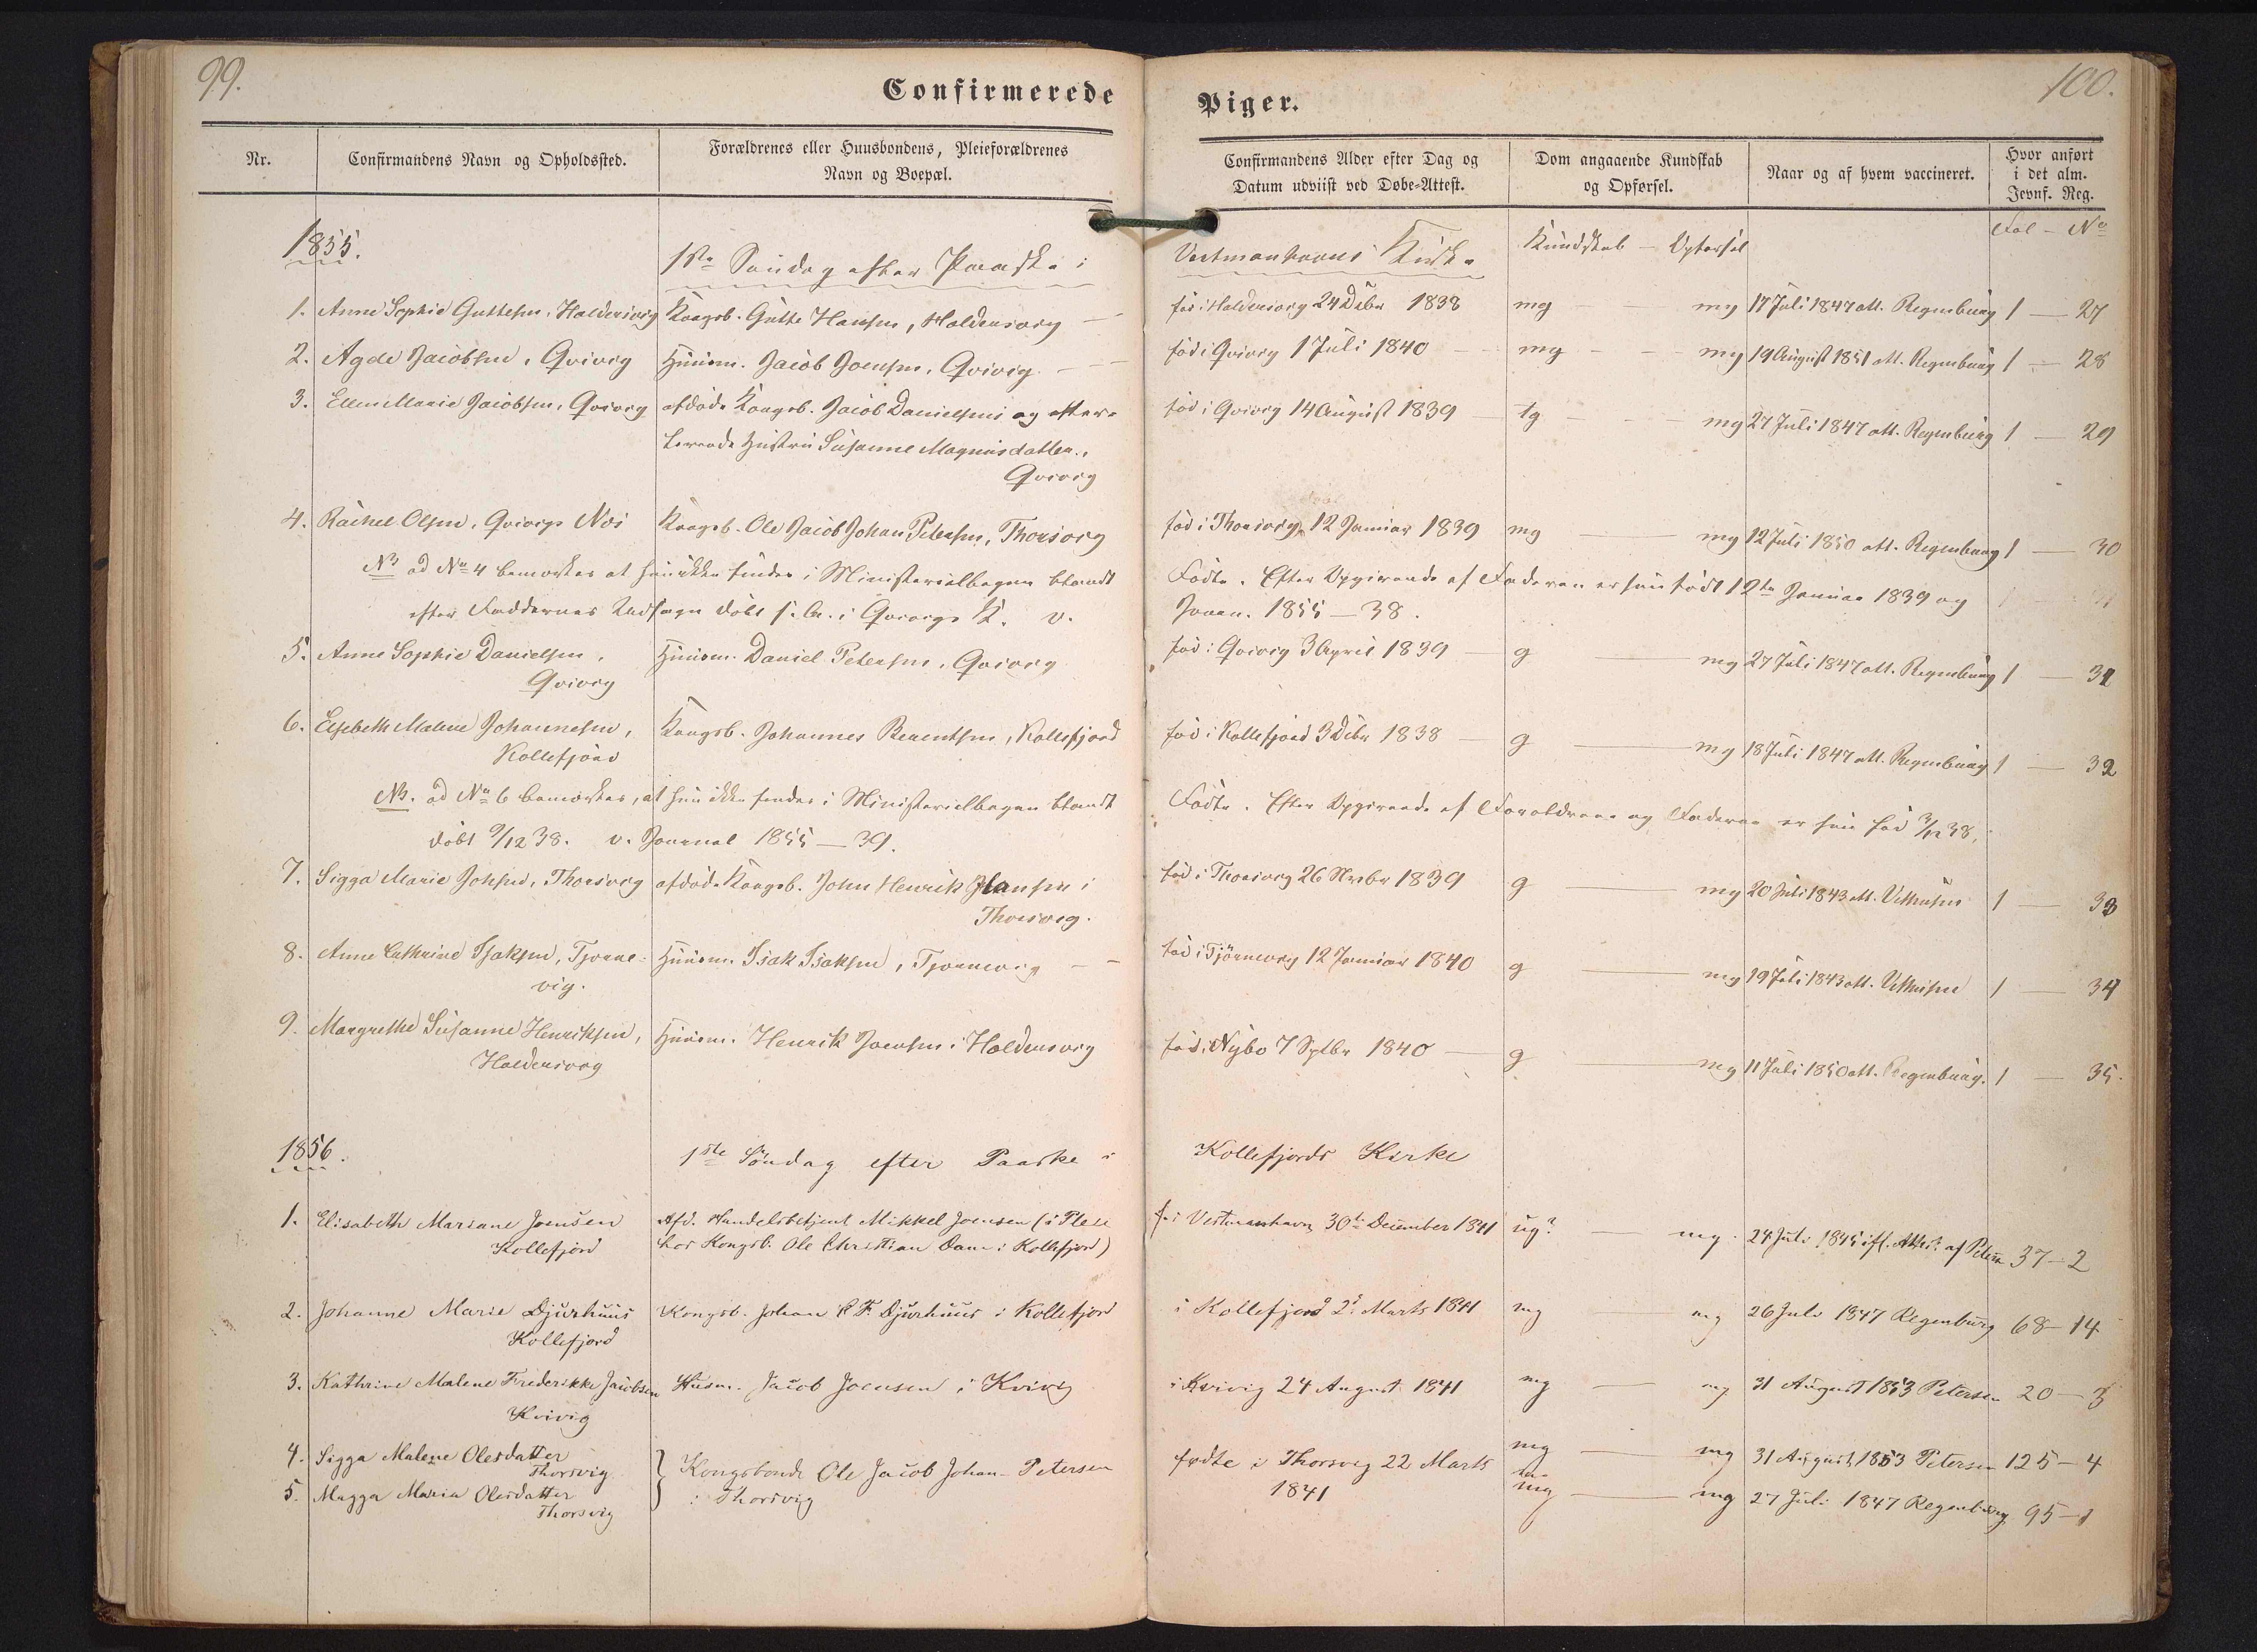 99.
Confirmerede
Nr.
Confirmandens Navn og Opholdssted.
Forældrenes eller Huusbondens, Pleieforældrenes
Navn og Boepæl.
1855.
1ste Søndag efter Paaske i
1. Anne Sophie Guttesen, Haldersvig Kongsb. Gutte Hansen, Haldersvig
2. Agde Jacobsen, Qvivig Huusm. Jacob Joensen, Qvivig
3. Ellen Marie Jacobsen, Qvivig afdøde Kongsb. Jacob Danielsens og efter-
levende Hustru Susanne Magnusdatter,
Qvivig
4. Rachel Olsen, Qvivigs Næs Kongsb. Ole Jacob Johan Petersen, Thorsvig
NB ad No 4 bemærkes at hun ikke findes i Ministerialbogen blandt
efter Faddernes Udsagn døbt i Qvivigs K. v.
5. Anne Sophie Danielsen, Huusm. Daniel Petersen, Qvivig
Qvivig
6. Elsebeth Malene Johannesen, Kongsb. Johannes Berentsen, Kollefjord
Kollefjord
NB. ad No 6 bemærkes, at hun ikke findes i Ministerialbogen blandt
døbt 9/12 38. v. Journal 1855 — 39.
7. Sigga Marie Johnsen, Thorsvig afdøde Kongsb. John Henrik Hansen i
Thorsvig.
8. Anne Cathrine Isaksen, Tjørne- Huusm. Isak Isaksen, Tjørnevig
vig.
9. Margrethe Susanne Henriksen, Huusm. Henrik Joensen i Haldersvig
Haldersvig
1856.
1ste Søndag efter Paaske i
1. Elisabeth Mariane Joensen Afd. Handelsbetjent Mikkel Joensen (i Pleie
Kollefjord hos Kongsb. Ole Christian Dam i Kollefjord)
2. Johanne Marie Djurhuus Kongsb. Johan P F. Djurhuus i Kollefjord
Kollefjord
3. Kathrine Malene Frederikke Jacobsen Husm. Jacob Joensen i Kvivig
Kvivig
4. Sigga Malene Olesdatter
Thorsvig
Kongsbonde Ole Jacob Johan Petersen
5. Magga Maria Olesdatter i Thorsvig
Thorsvig
100.
Piger.
Confirmandens Alder efter Dag og
Datum udviist ved Døbe-Attest.
Dom angaaende Kundskab
og Opførsel.
Naar og af hvem vaccineret.
Hvor anført
i det alm.
Jevnf. Reg.
Fol — No
Vestmanhavns Kirke Kundskab — Opførsel
fød i Haldersvig 24 Debr 1838 mg mg 17 Juli 1847 att. Regenburg 1 — 27
fød i Qvivig 1 Juli 1840 mg mg 19 August 1851 att. Regenburg 1 — 28
fød i Qvivig 14 August 1839 tg mg 27 Juli 1847 att. Regenburg 1 — 29
fød i Thorsvig, 12 Januar 1839 mg mg 12 Juli 1850 att. Regenburg 1 — 30
Fødte. Efter Opgivende af Faderen er hun født 12te Januar 1839 og
Journ. 1855 — 38.
fød i Qvivig 3 April 1839 g mg 27 Juli 1847 att. Regenburg 1 — 31
fød i Kollefjord 3 Debr 1838 g mg 18 Juli 1847 att. Regenburg 1 — 32
Fødte. Efter Opgivende af Forældrene og Fadderne er hun fød 3/12 38,
fød i Thorsvig 26 Novbr 1839 g mg 20 Juli 1843 att. 1 — 33
fød i Tjørnevig 12 Januar 1840 g mg 19 Juli 1843 att. 1 — 34
fød i Nybo 7 Septbr 1840 g mg 11 Juli 1850 att. Regenburg. 1 — 35.
Kollefjords Kirke
f. i Vestmanhavn 30te December 1841 ug? mg. 24 Juli 1845 ifl. Attest af Petersen 37—2
i Kollefjord 2d Marts 1841 mg mg 26 Juli 1847 Regenburg 68—14
i Kvivig 24 August 1841 mg mg 31 August 1853 Petersen 20—3
mg mg 31 August 1853 Petersen 125—4
fødte i Thorsvig 22 Marts
1841 mg mg 27 Juli 1847 Regenburg 95—1